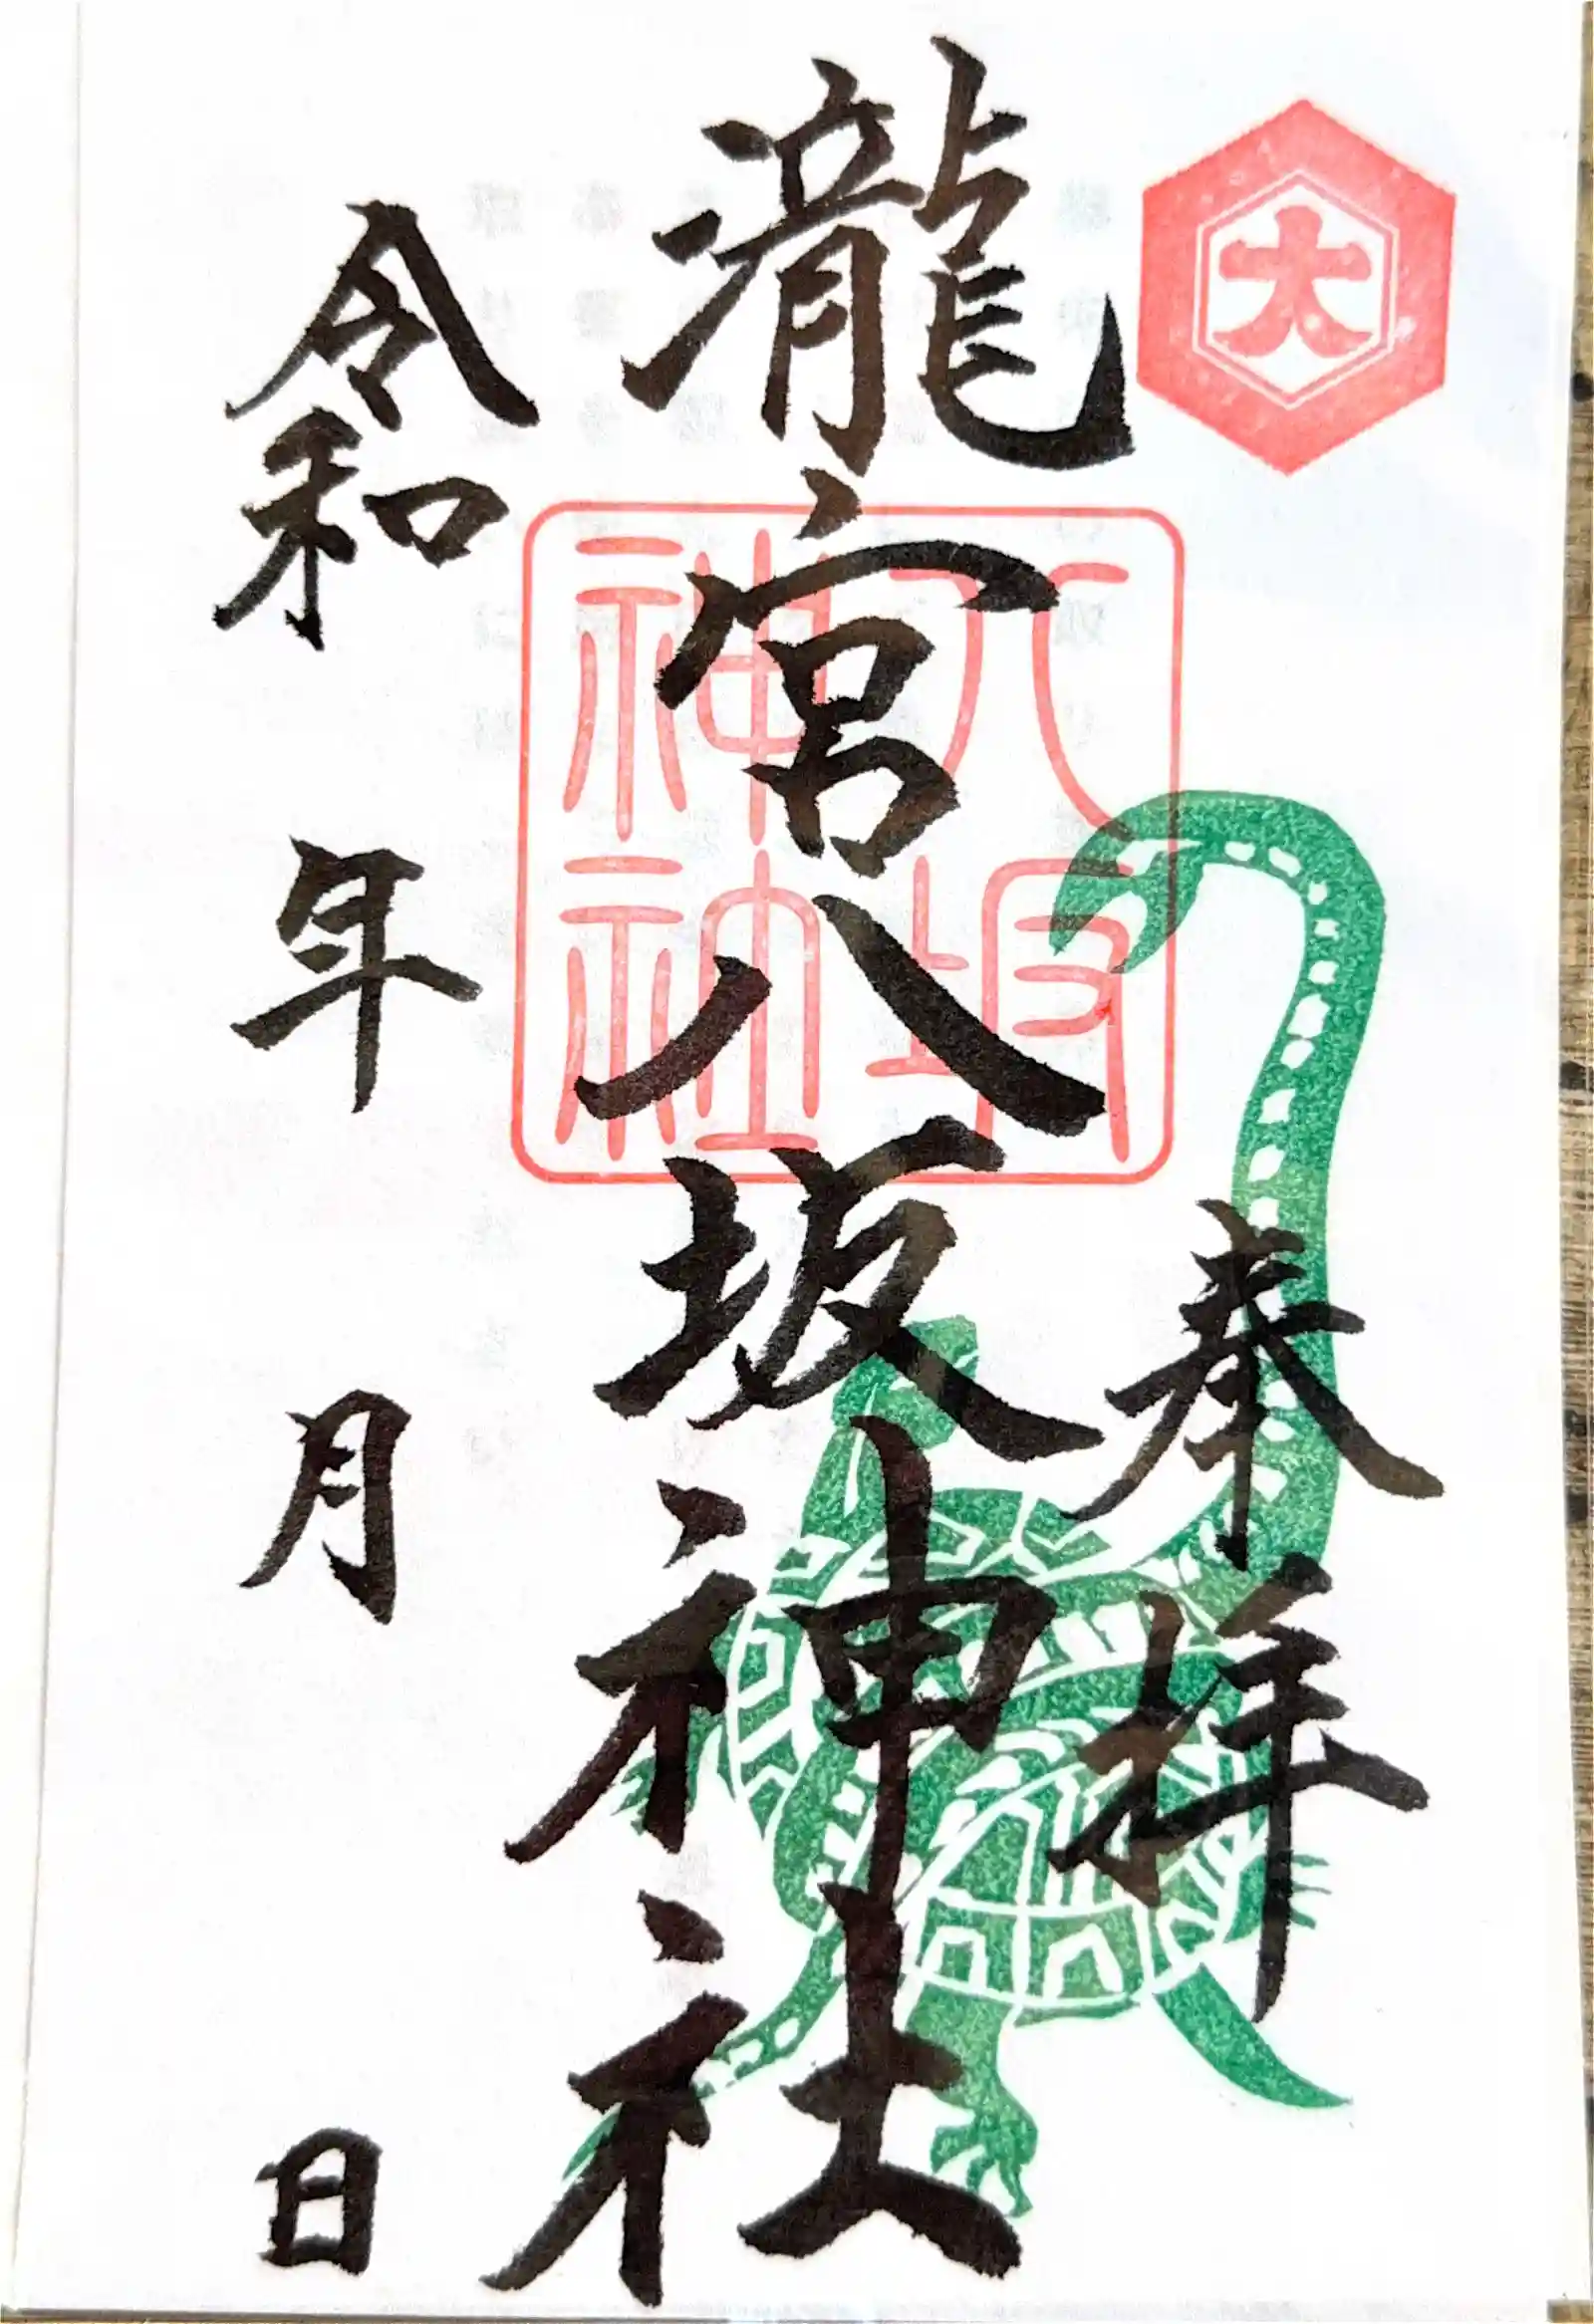 大
奉拝
瀧宮八坂神社
八坂
神社
令和 年 月 日